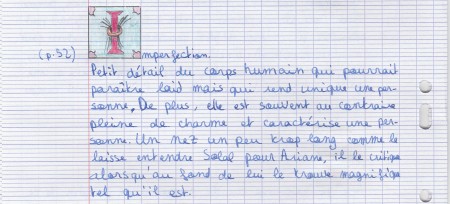 (p.52) Imperfection.
Petit détail du corps humain qui pourrait
paraître laid mais qui rend unique une per-
sonne. De plus, elle est souvent au contraire
pleine de charme et caractérise une per-
sonne. Un nez un peu trop long comme le
laisse entendre Solal pour Ariane, il le critique
alors qu'au fond de lui le trouve magnifique
tel qu'il est.